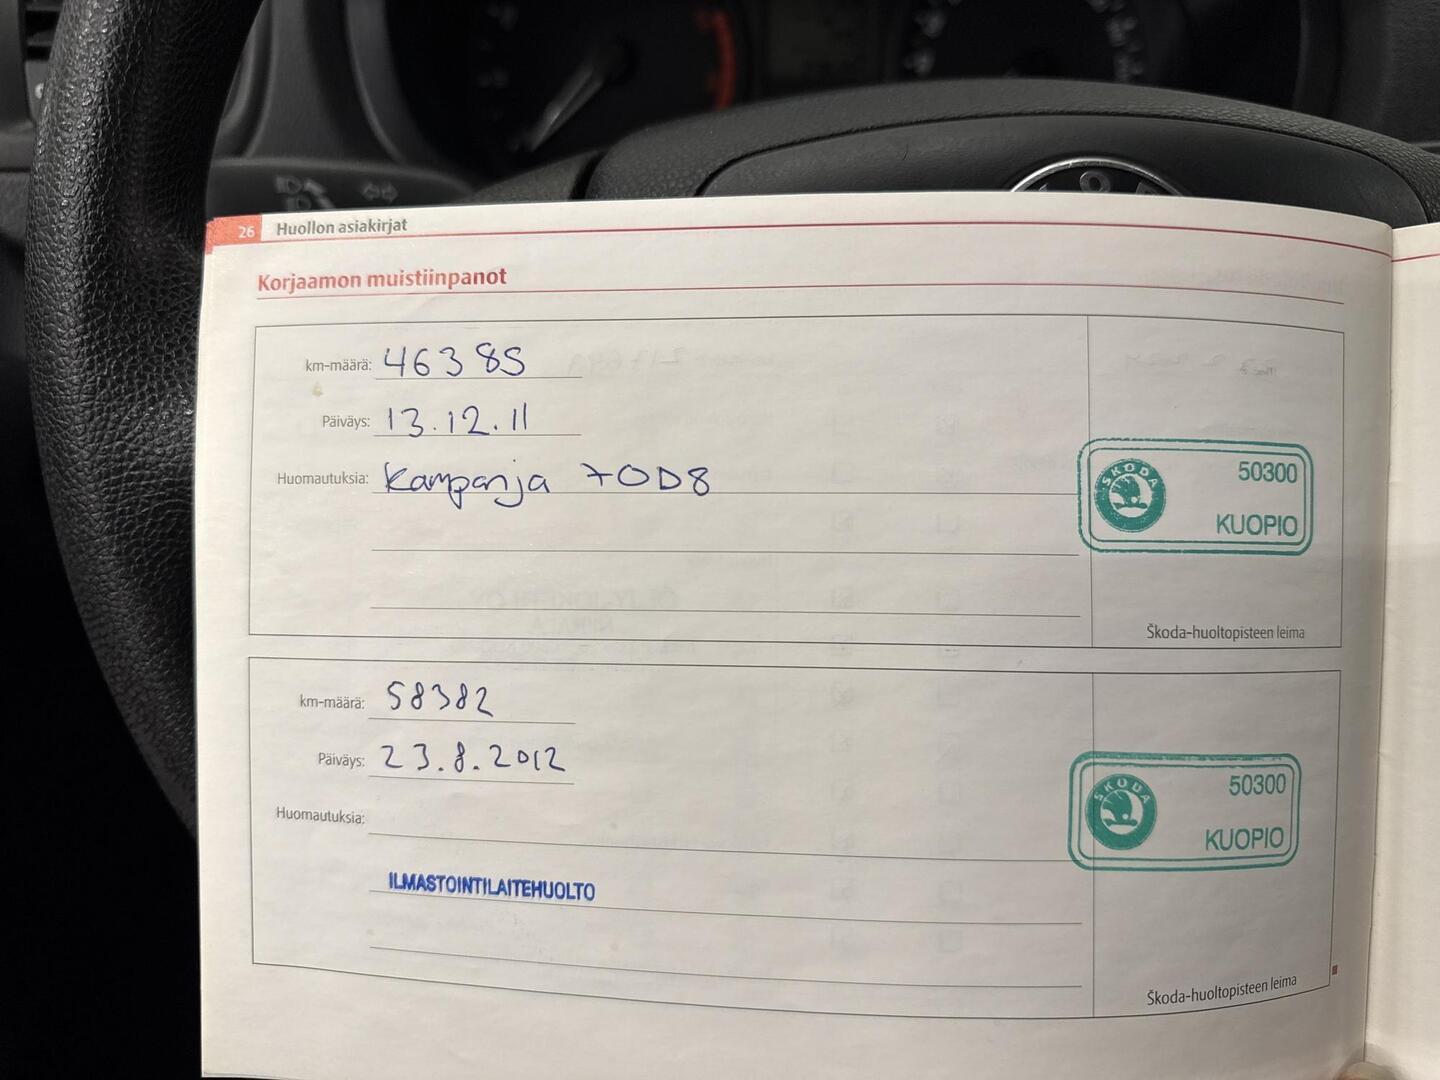 26 Huollon asiakirjat
Korjaamon muistiinpanot
km-määrä: 46385
Päiväys: 13.12.11
Huomautuksia: Kampanja 70D8
ŠKODA
50300
KUOPIO
Škoda-huoltopisteen leima
km-määrä: 58382
Päiväys: 23.8.2012
Huomautuksia:
ŠKODA
50300
KUOPIO
ILMASTOINTILAITEHUOLTO
Škoda-huoltopisteen leima